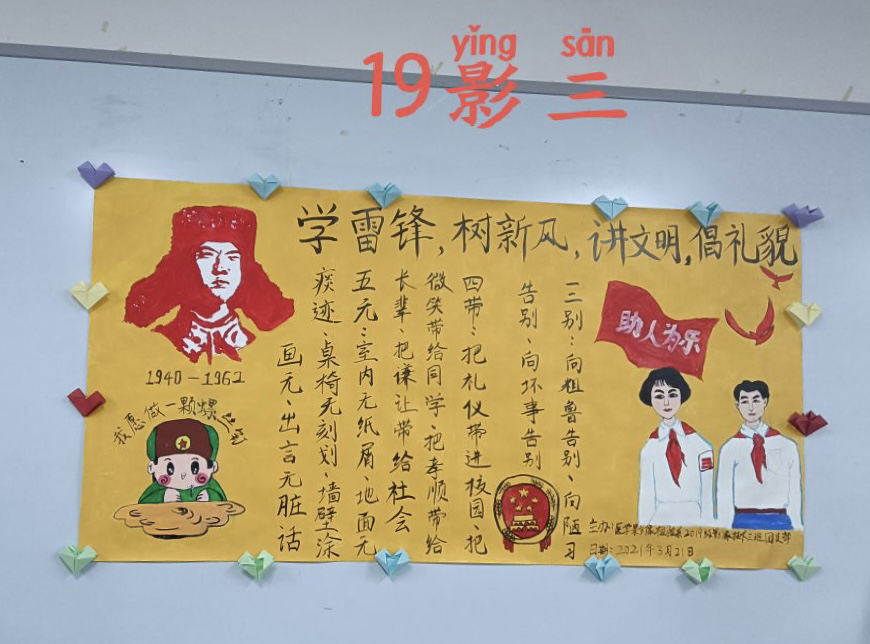 yǐng sān
19影三
学雷锋,树新风,讲文明,倡礼貌
1940-1962
我愿做一颗螺丝钉
三别:向粗鲁告别、向陋习
告别、向坏事告别
四带:把礼仪带进校园、把
微笑带给同学、把孝顺带给
长辈、把谦让带给社会
五无:室内无纸屑、地面无
痰迹、桌椅无刻划、墙壁涂
画无、出言无脏话
助人为乐
主办:医学 2019级影像技术三班团支部
日期:2021年3月21日